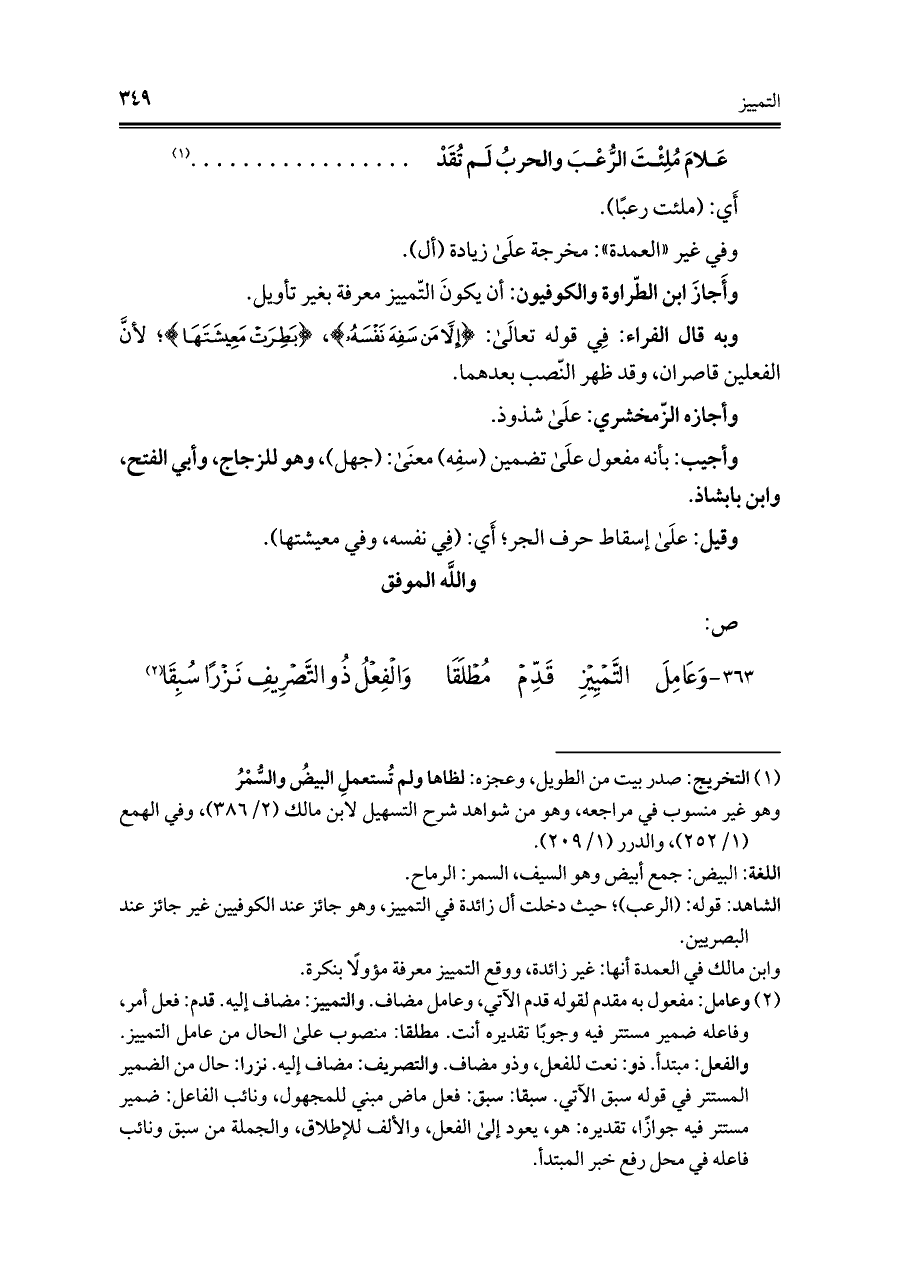 التمييز ٣٤٩
عَـلامَ مُلِئْـتَ الرُّعْـبَ والحربُ لَـم تُقَدْ .................(١)
أَي: (ملئت رعبًا).
وفي غير «العمدة»: مخرجة علَىٰ زيادة (أل).
وأَجازَ ابن الطّراوة والكوفيون: أن يكونَ التّمييز معرفة بغير تأويل.
وبه قال الفراء: فِي قوله تعالَىٰ: ﴿إِلَّا مَن سَفِهَ نَفْسَهُۥ﴾، ﴿بَطِرَتْ مَعِيشَتَهَا﴾؛ لأنَّ
الفعلين قاصران، وقد ظهر النّصب بعدهما.
وأجازه الزّمخشري: علَىٰ شذوذ.
وأجيب: بأنه مفعول علَىٰ تضمين (سفِه) معنَىٰ: (جهل)، وهو للزجاج، وأبي الفتح،
وابن بابشاذ.
وقيل: علَىٰ إسقاط حرف الجر؛ أَي: (فِي نفسه، وفي معيشتها).
واللَّه الموفق
ص:
٣٦٣-وَعَامِلَ التَّمْيِيْزِ قَدِّمْ مُطْلَقَا وَالْفِعْلُ ذُو التَّصْرِيفِ نَزْرًا سُبِقَا(٢)
(١) التخريج: صدر بيت من الطويل، وعجزه: لظاها ولم تُستعملِ البيضُ والسُّمْرُ
وهو غير منسوب في مراجعه، وهو من شواهد شرح التسهيل لابن مالك (٢/ ٣٨٦)، وفي الهمع
(١/ ٢٥٢)، والدرر (١/ ٢٠٩).
اللغة: البيض: جمع أبيض وهو السيف، السمر: الرماح.
الشاهد: قوله: (الرعب)؛ حيث دخلت أل زائدة في التمييز، وهو جائز عند الكوفيين غير جائز عند
البصريين.
وابن مالك في العمدة أنها: غير زائدة، ووقع التمييز معرفة مؤولًا بنكرة.
(٢) وعامل: مفعول به مقدم لقوله قدم الآتي، وعامل مضاف. والتمييز: مضاف إليه. قدم: فعل أمر،
وفاعله ضمير مستتر فيه وجوبًا تقديره أنت. مطلقا: منصوب علىٰ الحال من عامل التمييز.
والفعل: مبتدأ. ذو: نعت للفعل، وذو مضاف. والتصريف: مضاف إليه. نزرا: حال من الضمير
المستتر في قوله سبق الآتي. سبقا: سبق: فعل ماض مبني للمجهول، ونائب الفاعل: ضمير
مستتر فيه جوازًا، تقديره: هو، يعود إلىٰ الفعل، والألف للإطلاق، والجملة من سبق ونائب
فاعله في محل رفع خبر المبتدأ.